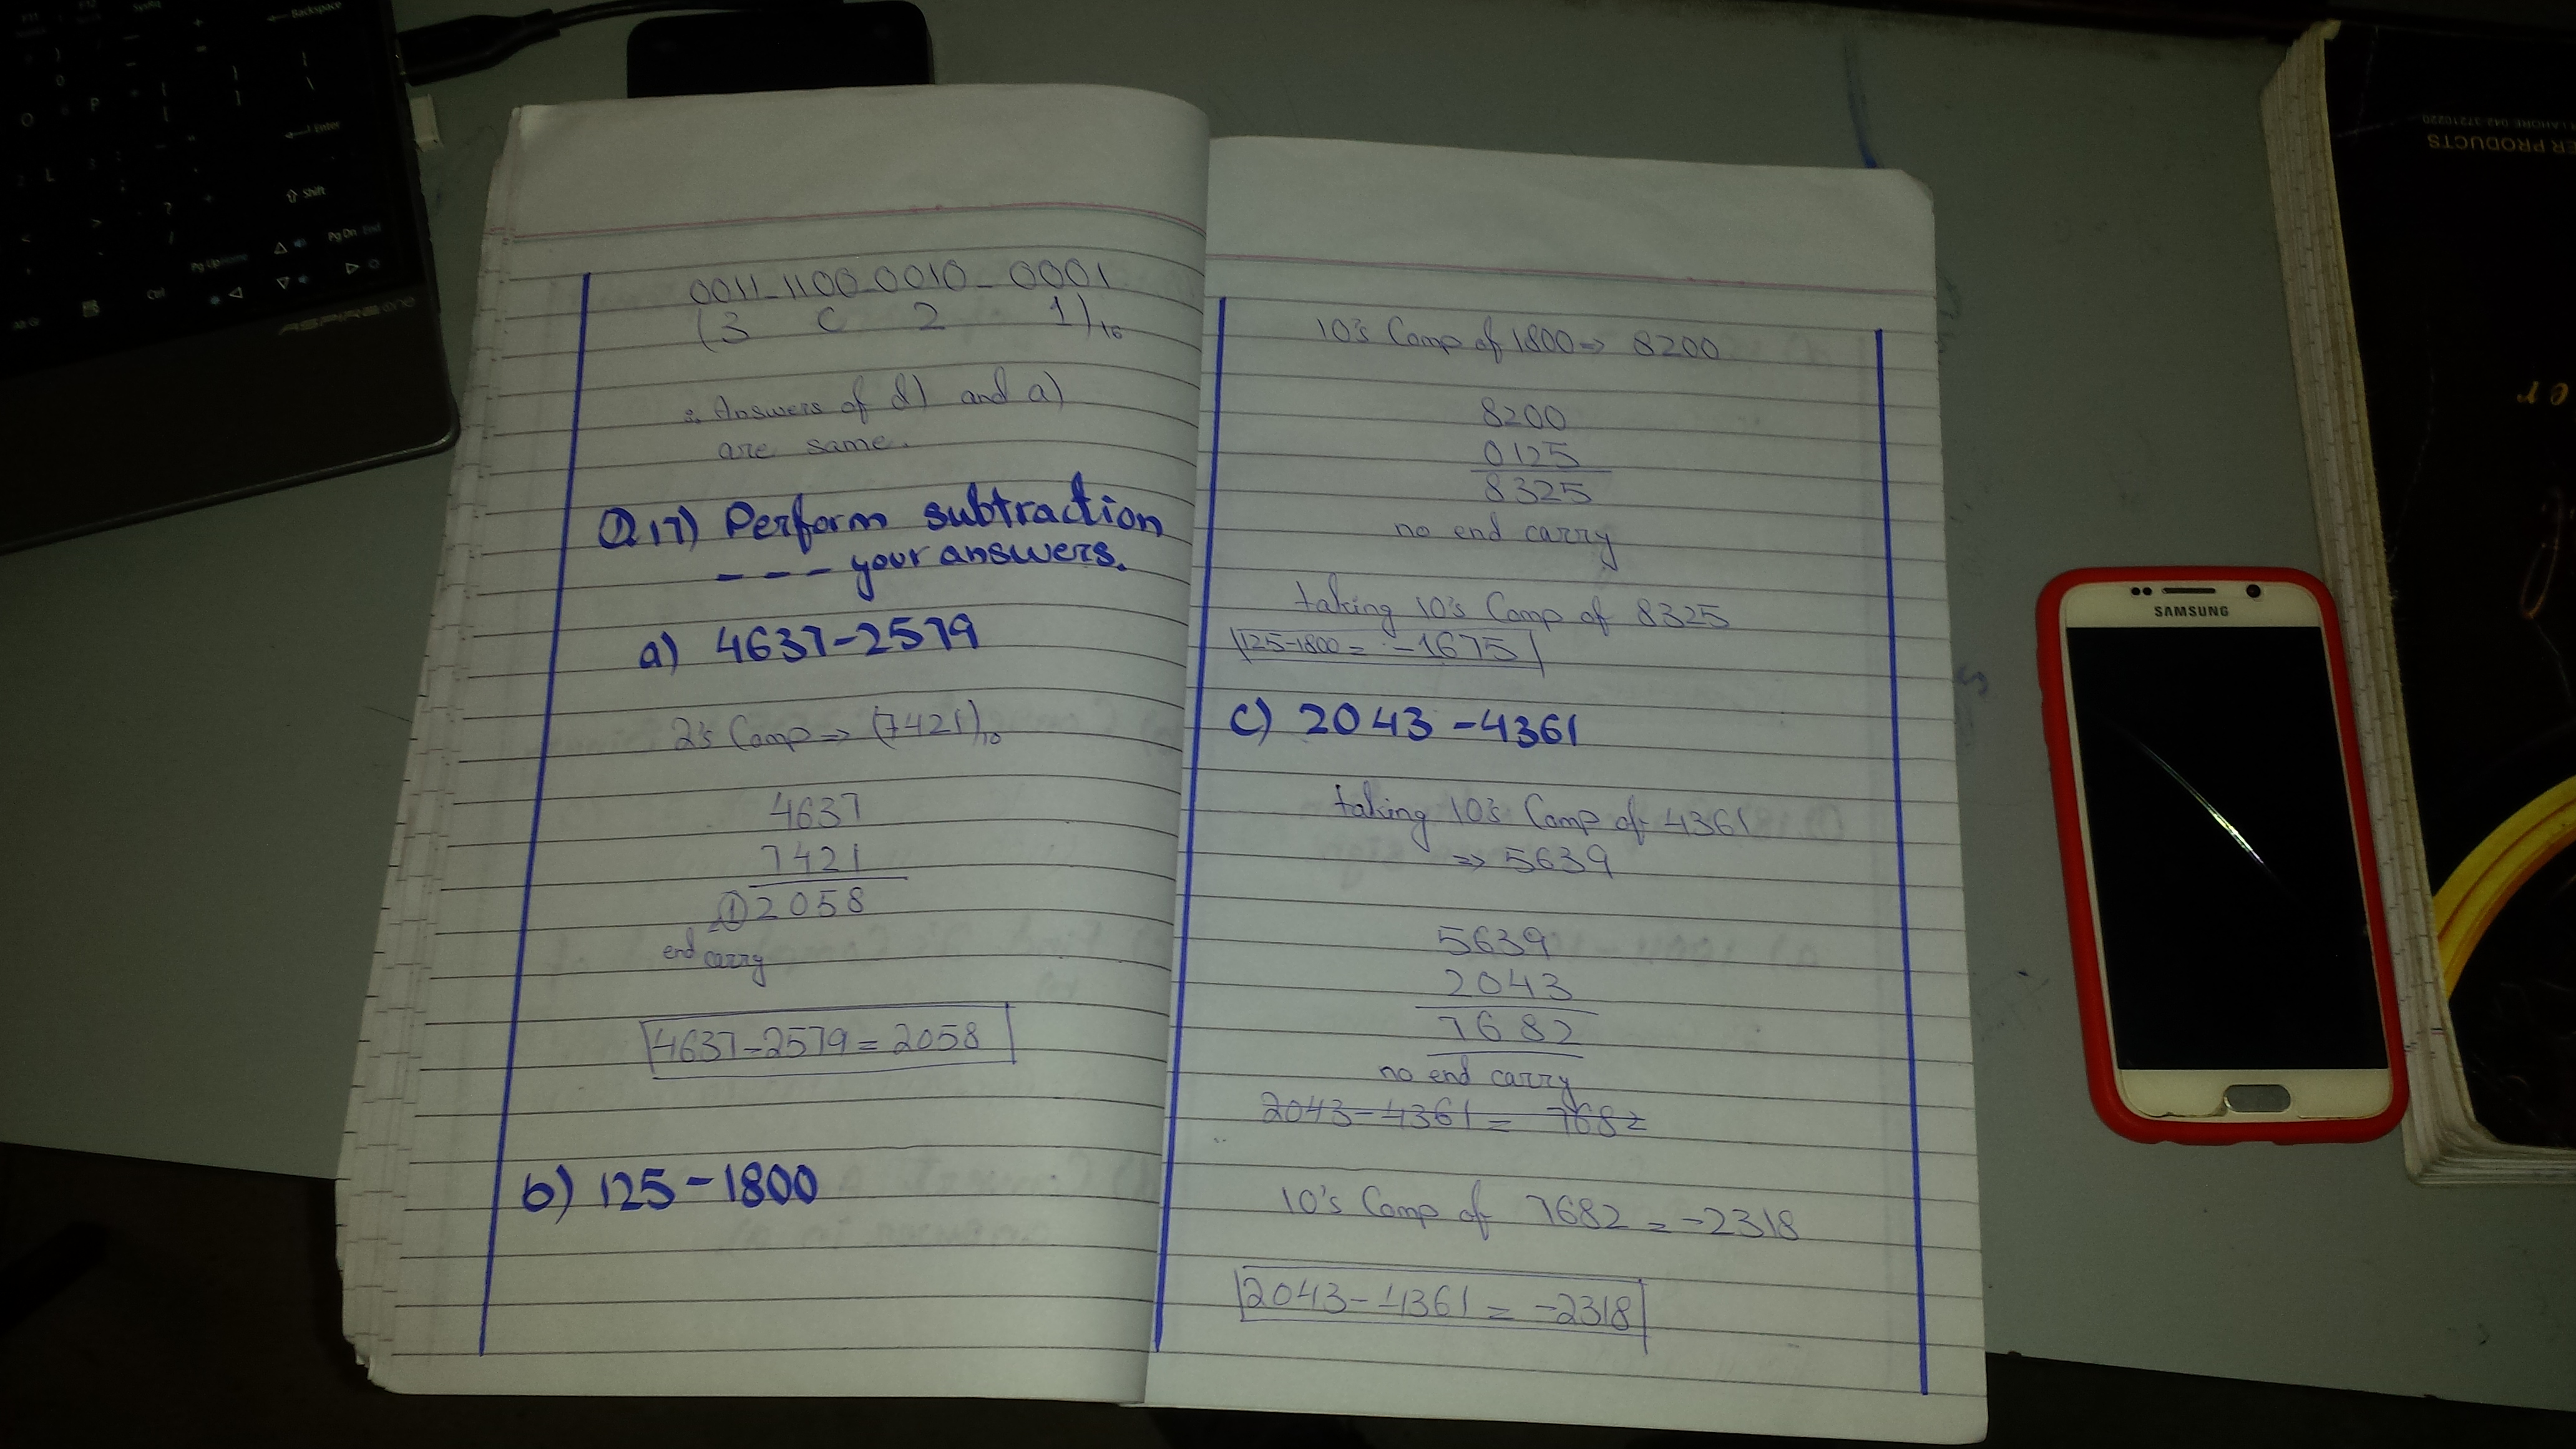 0011-1100-0010-0001
(3 C 2 1)16
∴ Answers of d) and a)
are same.
Q.17) Perform subtraction
---- your answers.
a) 4637-2579
2's Comp => (7421)10
4637
7421
1 2058
end carry
4637-2579=2058
b) 125-1800
10's Comp of 1800=> 8200
8200
0125
8325
no end carry
taking 10's Comp of 8325
125-1800= -1675
c) 2043-4361
taking 10's Comp of 4361
=> 5639
5639
2043
7682
no end carry
2043-4361= -7682
10's Comp of 7682 = -2318
2043-4361 = -2318
SAMSUNG
ASPIRE one
Backspace
Enter
Shift
Ctrl
Alt Gr
Pg Up
Home
Pg Dn
End
ER PRODUCTS
LAHORE 042-37210220
er